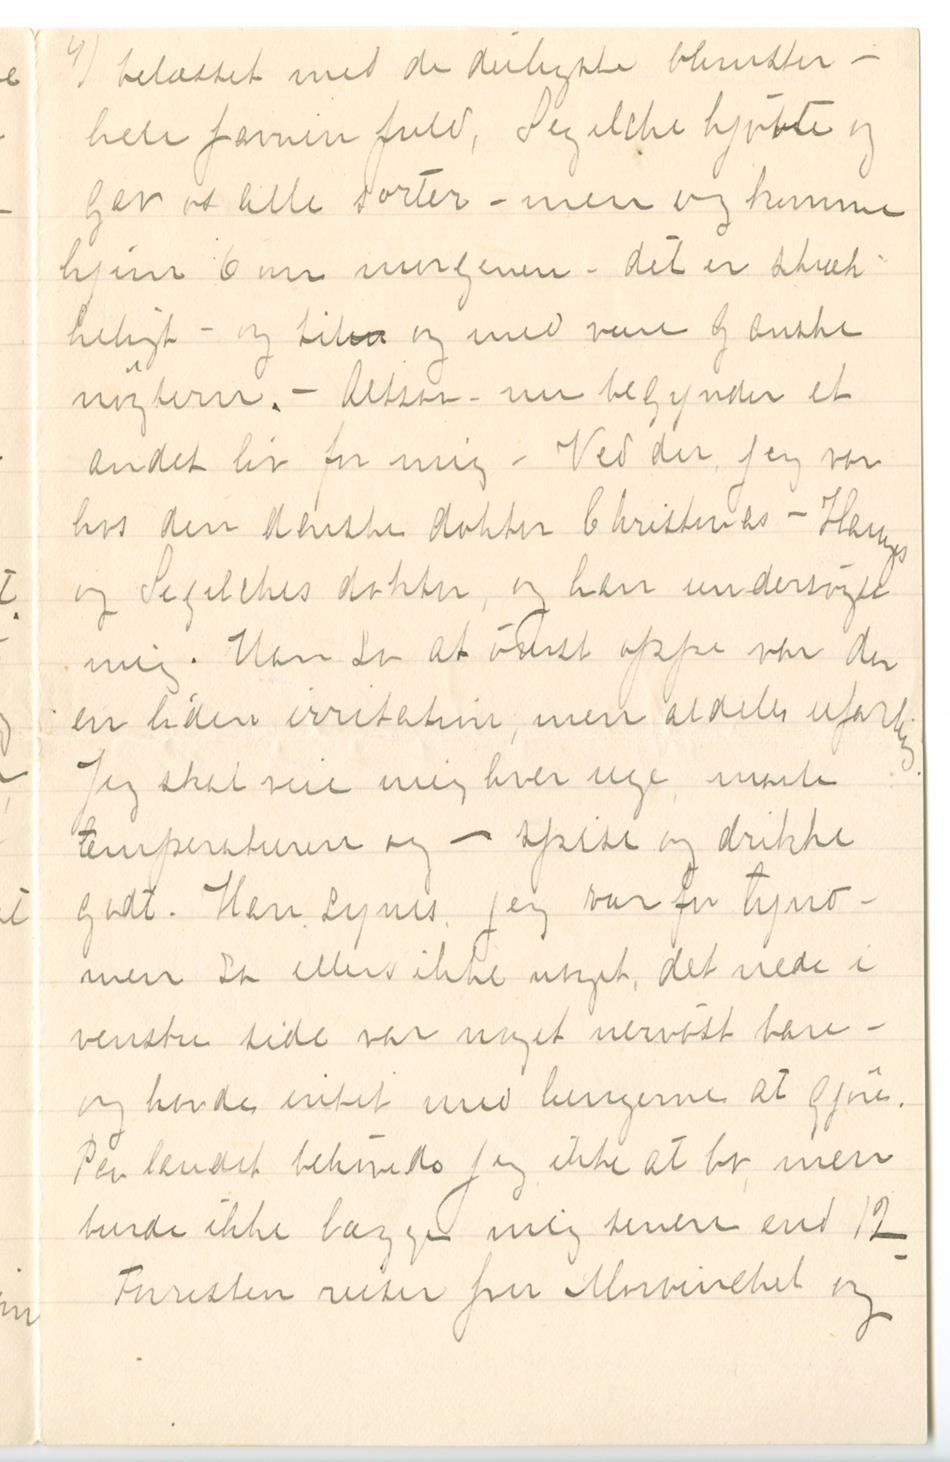 4) belæsset med de deiligste blomster –
hele favnen fuld, Segelcke kjøbte og
gav os alle sorter – men og komme
hjem 6 om morgenen – det er skræk-
keligt – og og med være ganske
nøgtern. – Altsaa – nu begynder et
andet liv for mig – Ved du, jeg var
hos den danske doktor Christmas –
og Segelckes doktor, og han undersøgte
mig. Han så at øverst oppe var der
en liden irritation, men aldeles ufarlig.
Jeg skal veie mig hver uge, maale
temperaturen og – spise og drikke
godt. Han synes, jeg var for tynd –
men så ellers ikke noget, det nede i
venstre side var noget nervøst bare –
og havde intet med lungerne at gjøre.
Paa landet behøvede jeg ikke at bo, men
burde ikke lægge mig senere end 12 –
Forresten reiser fru og